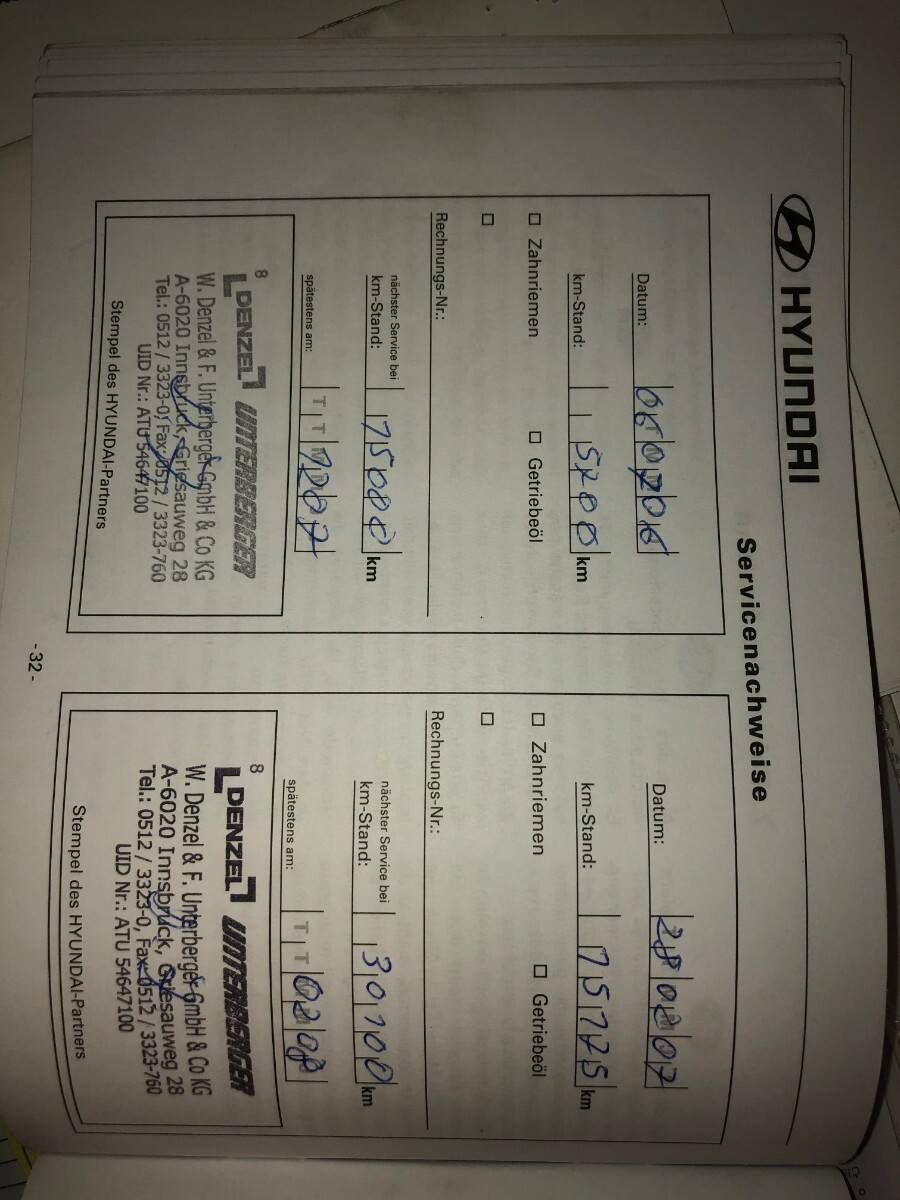 HYUNDAI
Servicenachweise
Datum: 06 07 06
km-Stand: 5200 km
Zahnriemen Getriebeöl
Rechnungs-Nr.:
nächster Service bei
km-Stand: 15000 km
spätestens am: T T
8 DENZEL UNTERBERGER
W. Denzel & F. Unterberger GmbH & Co KG
A-6020 Innsbruck, Griesauweg 28
Tel.: 0512 / 3323-0, Fax: 0512 / 3323-760
UID Nr.: ATU 54647100
Stempel des HYUNDAI-Partners
Datum: 28 02 07
km-Stand: 15125 km
Zahnriemen Getriebeöl
Rechnungs-Nr.:
nächster Service bei
km-Stand: 30100 km
spätestens am: T T 02 08
8 DENZEL UNTERBERGER
W. Denzel & F. Unterberger GmbH & Co KG
A-6020 Innsbruck, Griesauweg 28
Tel.: 0512 / 3323-0, Fax: 0512 / 3323-760
UID Nr.: ATU 54647100
Stempel des HYUNDAI-Partners
- 32 -